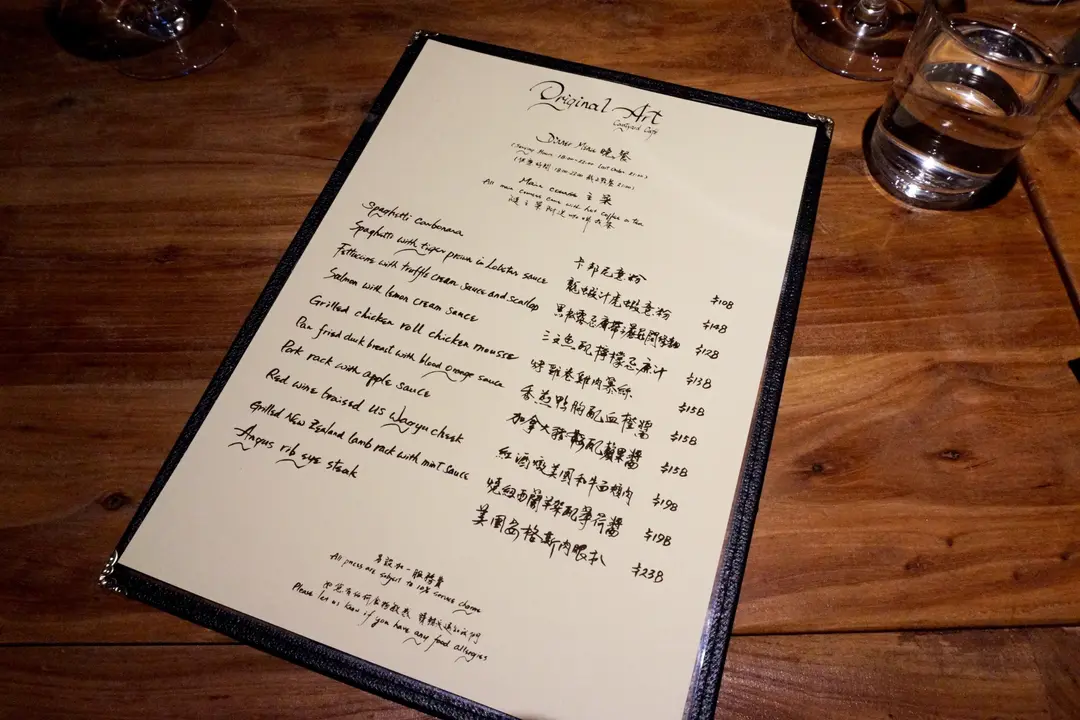 Original Art
Courtyard Cafe
Dinner Menu 晚餐
(Serving Hours 18:00-22:00 Last Order 21:00)
Main course 主菜
All main courses come with hot coffee or tea
Spaghetti Carbonara 卡邦尼意粉 $108
Spaghetti with tiger prawn in Lobster sauce 龍蝦汁虎蝦意粉 $148
Fettuccine with truffle cream sauce and scallop $128
Salmon with lemon cream sauce 三文魚配檸檬忌廉汁 $138
Grilled chicken roll chicken mousse 燒雞卷雞肉慕絲 $158
Pan fried duck breast with blood orange sauce 香煎鴨胸配血橙醬 $158
Pork rack with apple sauce 加拿大豬鞍配蘋果醬 $158
Red wine braised US Wagyu cheek 紅酒燴美國和牛面頰肉 $198
Grilled New Zealand lamb rack with mint sauce 燒紐西蘭羊架配薄荷醬 $198
Angus rib eye steak 美國安格斯肉眼扒 $238
另設加一服務費
All prices are subject to 10% service charge
Please let us know if you have any food allergies